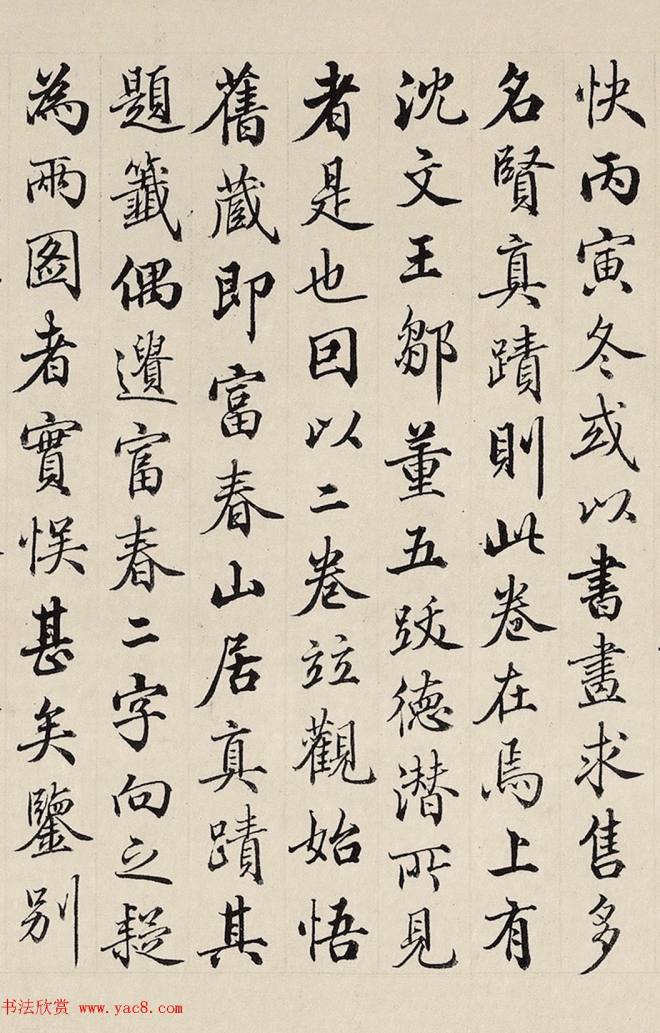 快丙寅冬或以書畫求售多
名賢真蹟則此卷在焉上有
沈文王鄒董五跋德潛所見
者是也因以二卷竝觀始悟
舊藏即富春山居真蹟其
題籤偶遺富春二字向之疑
為兩圖者實悮甚矣鑒别
书法欣赏 www.yac8.com